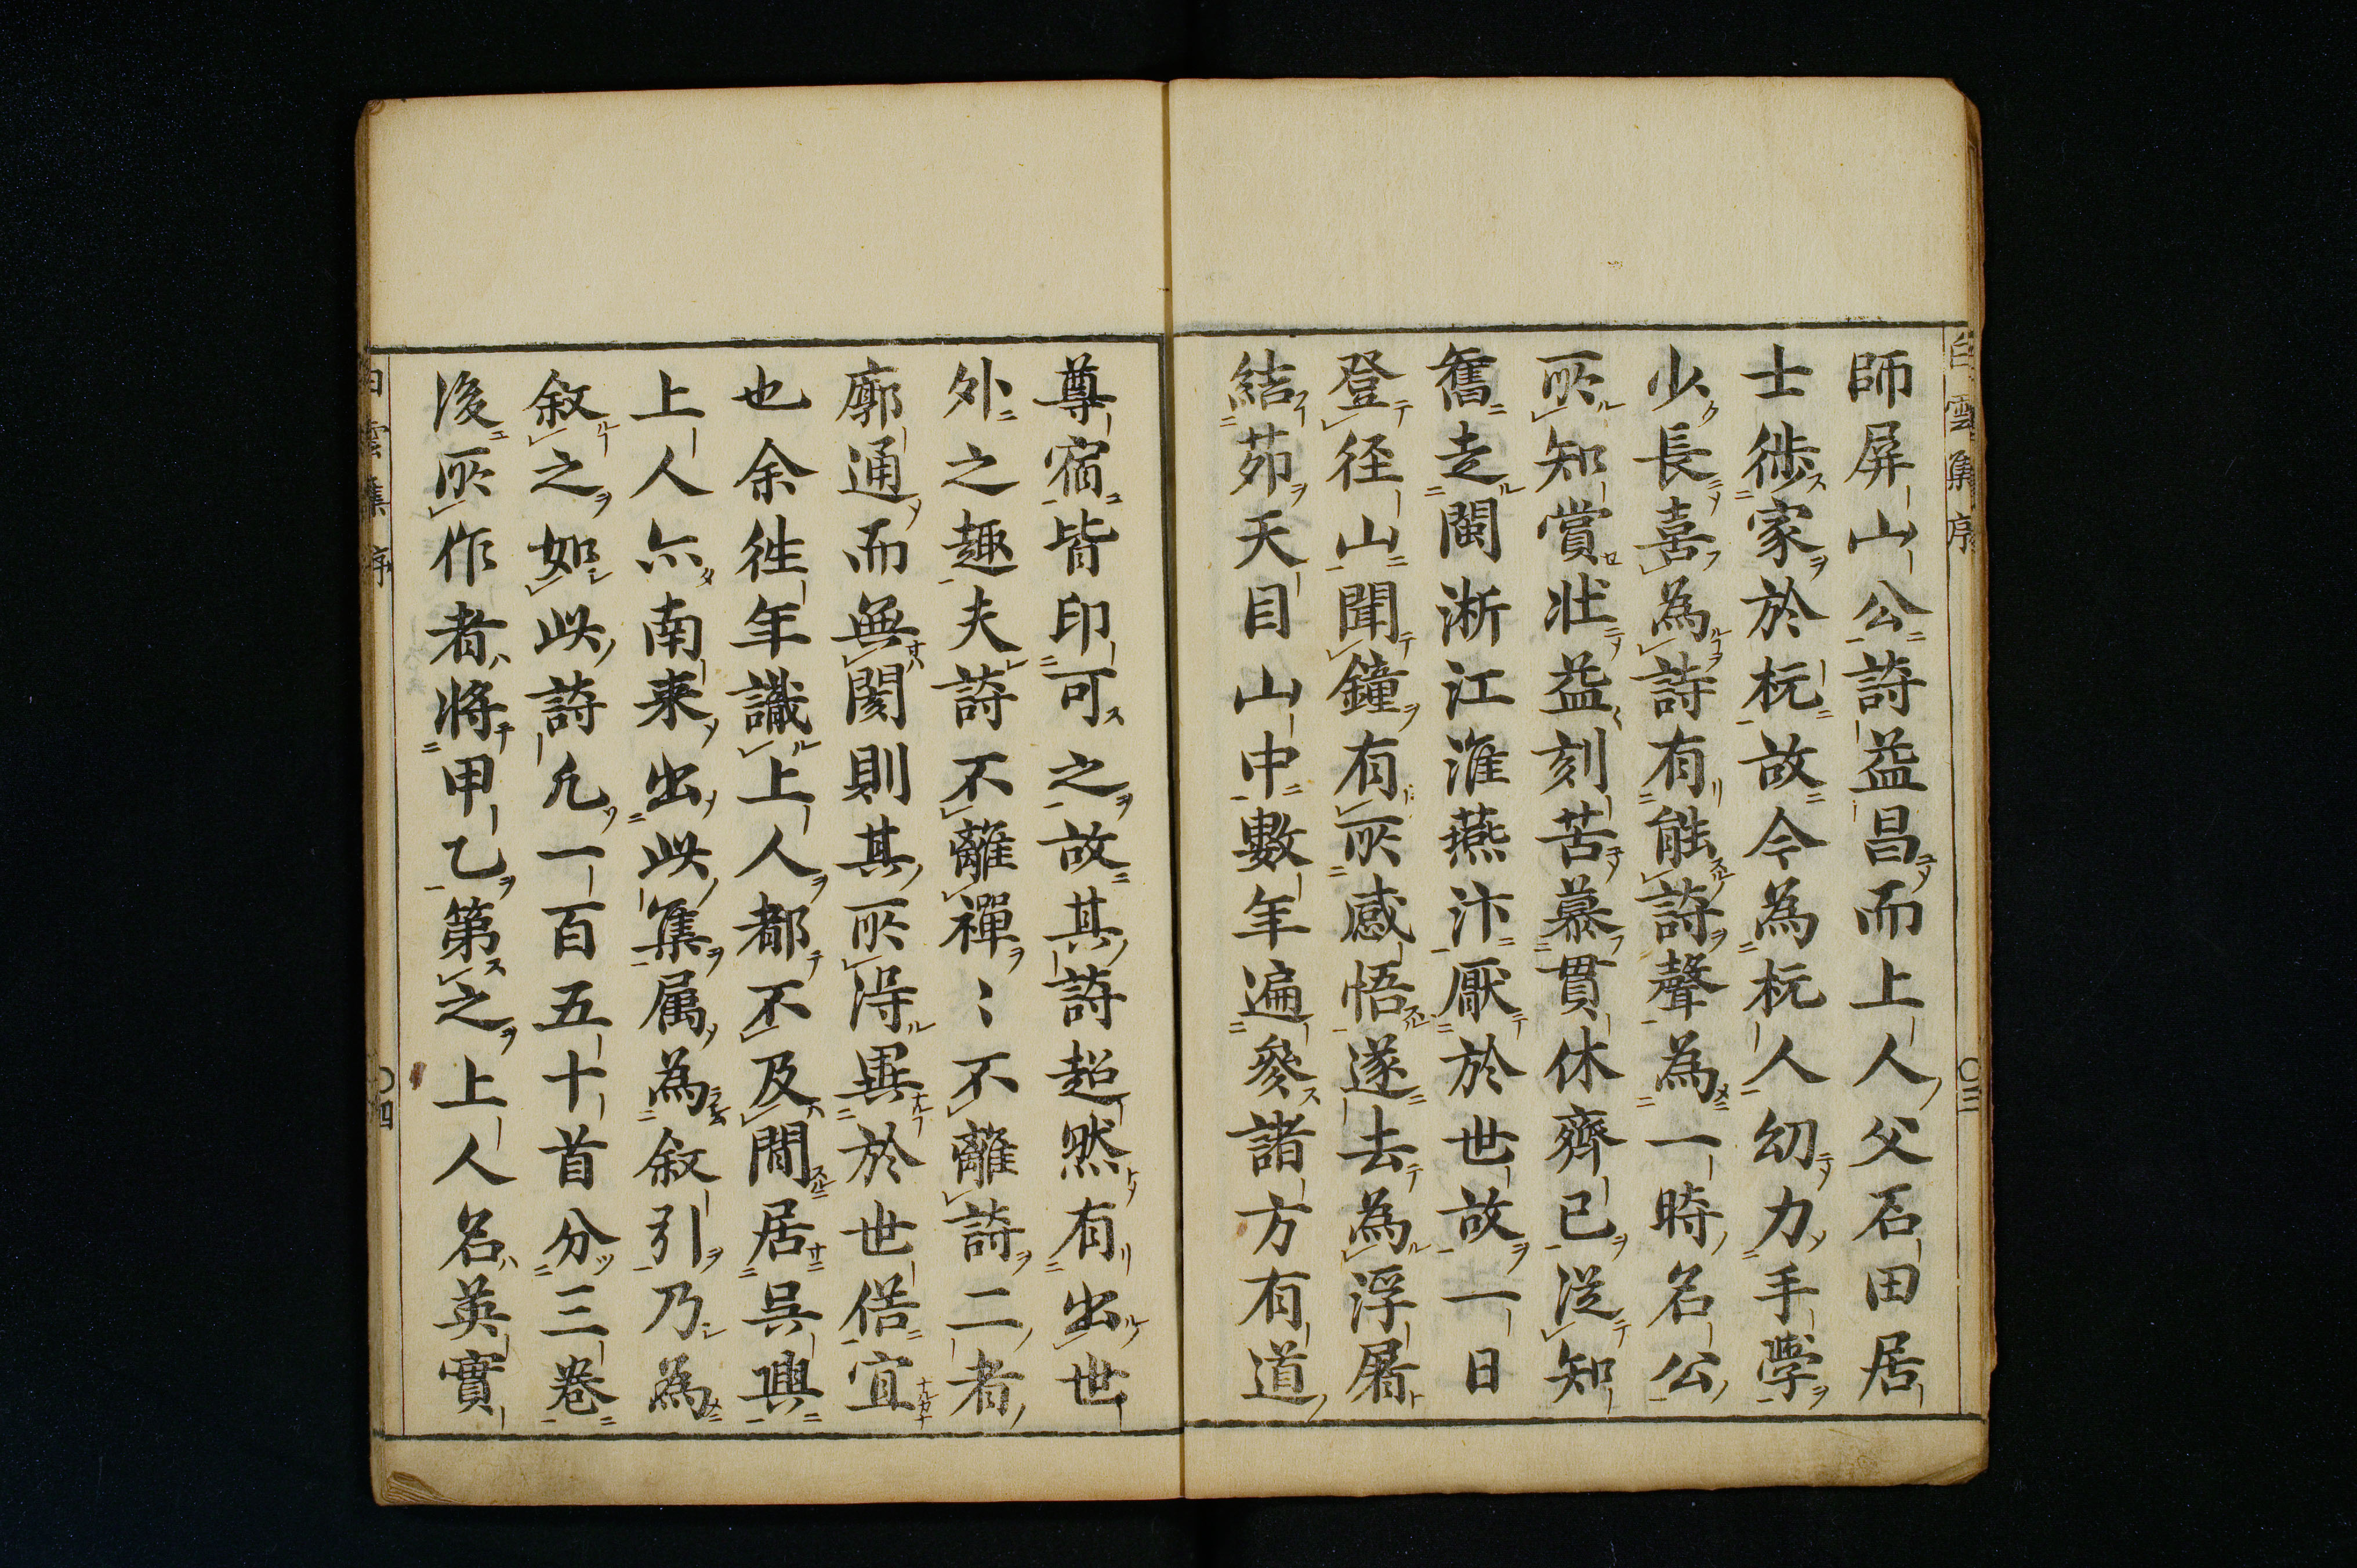 白雲集序
〇三
師屏山公詩益昌而上人父石田居
士徙家於杬故今為杬人幻力手學
少長喜為詩有能詩聲為一時名公
所知賞壯益刻苦慕貫休齊己從知
舊走閩淅江淮燕汴厭於世故一日
登径山聞鐘有所感悟遂去為浮屠
結茆天目山中數年遍參諸方有道
尊宿皆印可之故其詩超然有出世
外之趣夫詩不離禪〻不離詩二者
廓通而無閡則其所得異於世俗宜
也余徃年識上人都不及閒居吳興
上人亦南来出此集属為叙引乃為
叙之如此詩凡一百五十首分三卷
後所作者將甲乙第之上人名英實
白雲集序
〇四